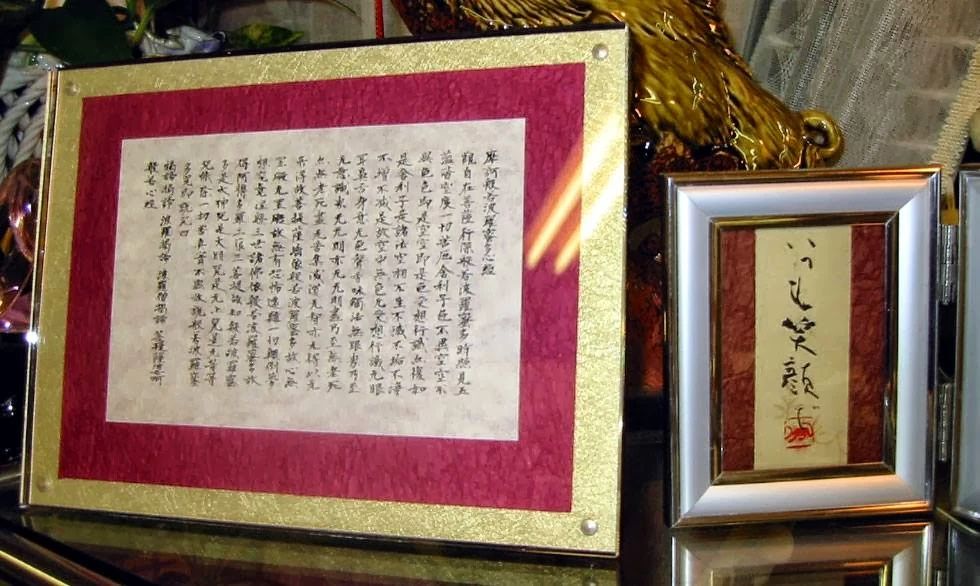 摩訶般若波羅蜜多心経
観自在菩薩行深般若波羅蜜多時照見五
蘊皆空度一切苦厄舎利子色不異空空不
異色色即是空空即是色受想行識亦復如
是舎利子是諸法空相不生不滅不垢不浄
不増不減是故空中無色無受想行識無眼
耳鼻舌身意無色声香味触法無眼界乃至
無意識界無無明亦無無明尽乃至無老死
亦無老死尽無苦集滅道無智亦無得以無
所得故菩提薩埵依般若波羅蜜多故心無
罣礙無罣礙故無有恐怖遠離一切顛倒夢
想究竟涅槃三世諸仏依般若波羅蜜多故
得阿耨多羅三藐三菩提故知般若波羅蜜
多是大神呪是大明呪是無上呪是無等等
呪能除一切苦真実不虚故説般若波羅蜜
多呪即説呪曰
羯諦羯諦 波羅羯諦 波羅僧羯諦 菩提薩婆訶
般若心経
いつも笑顔で